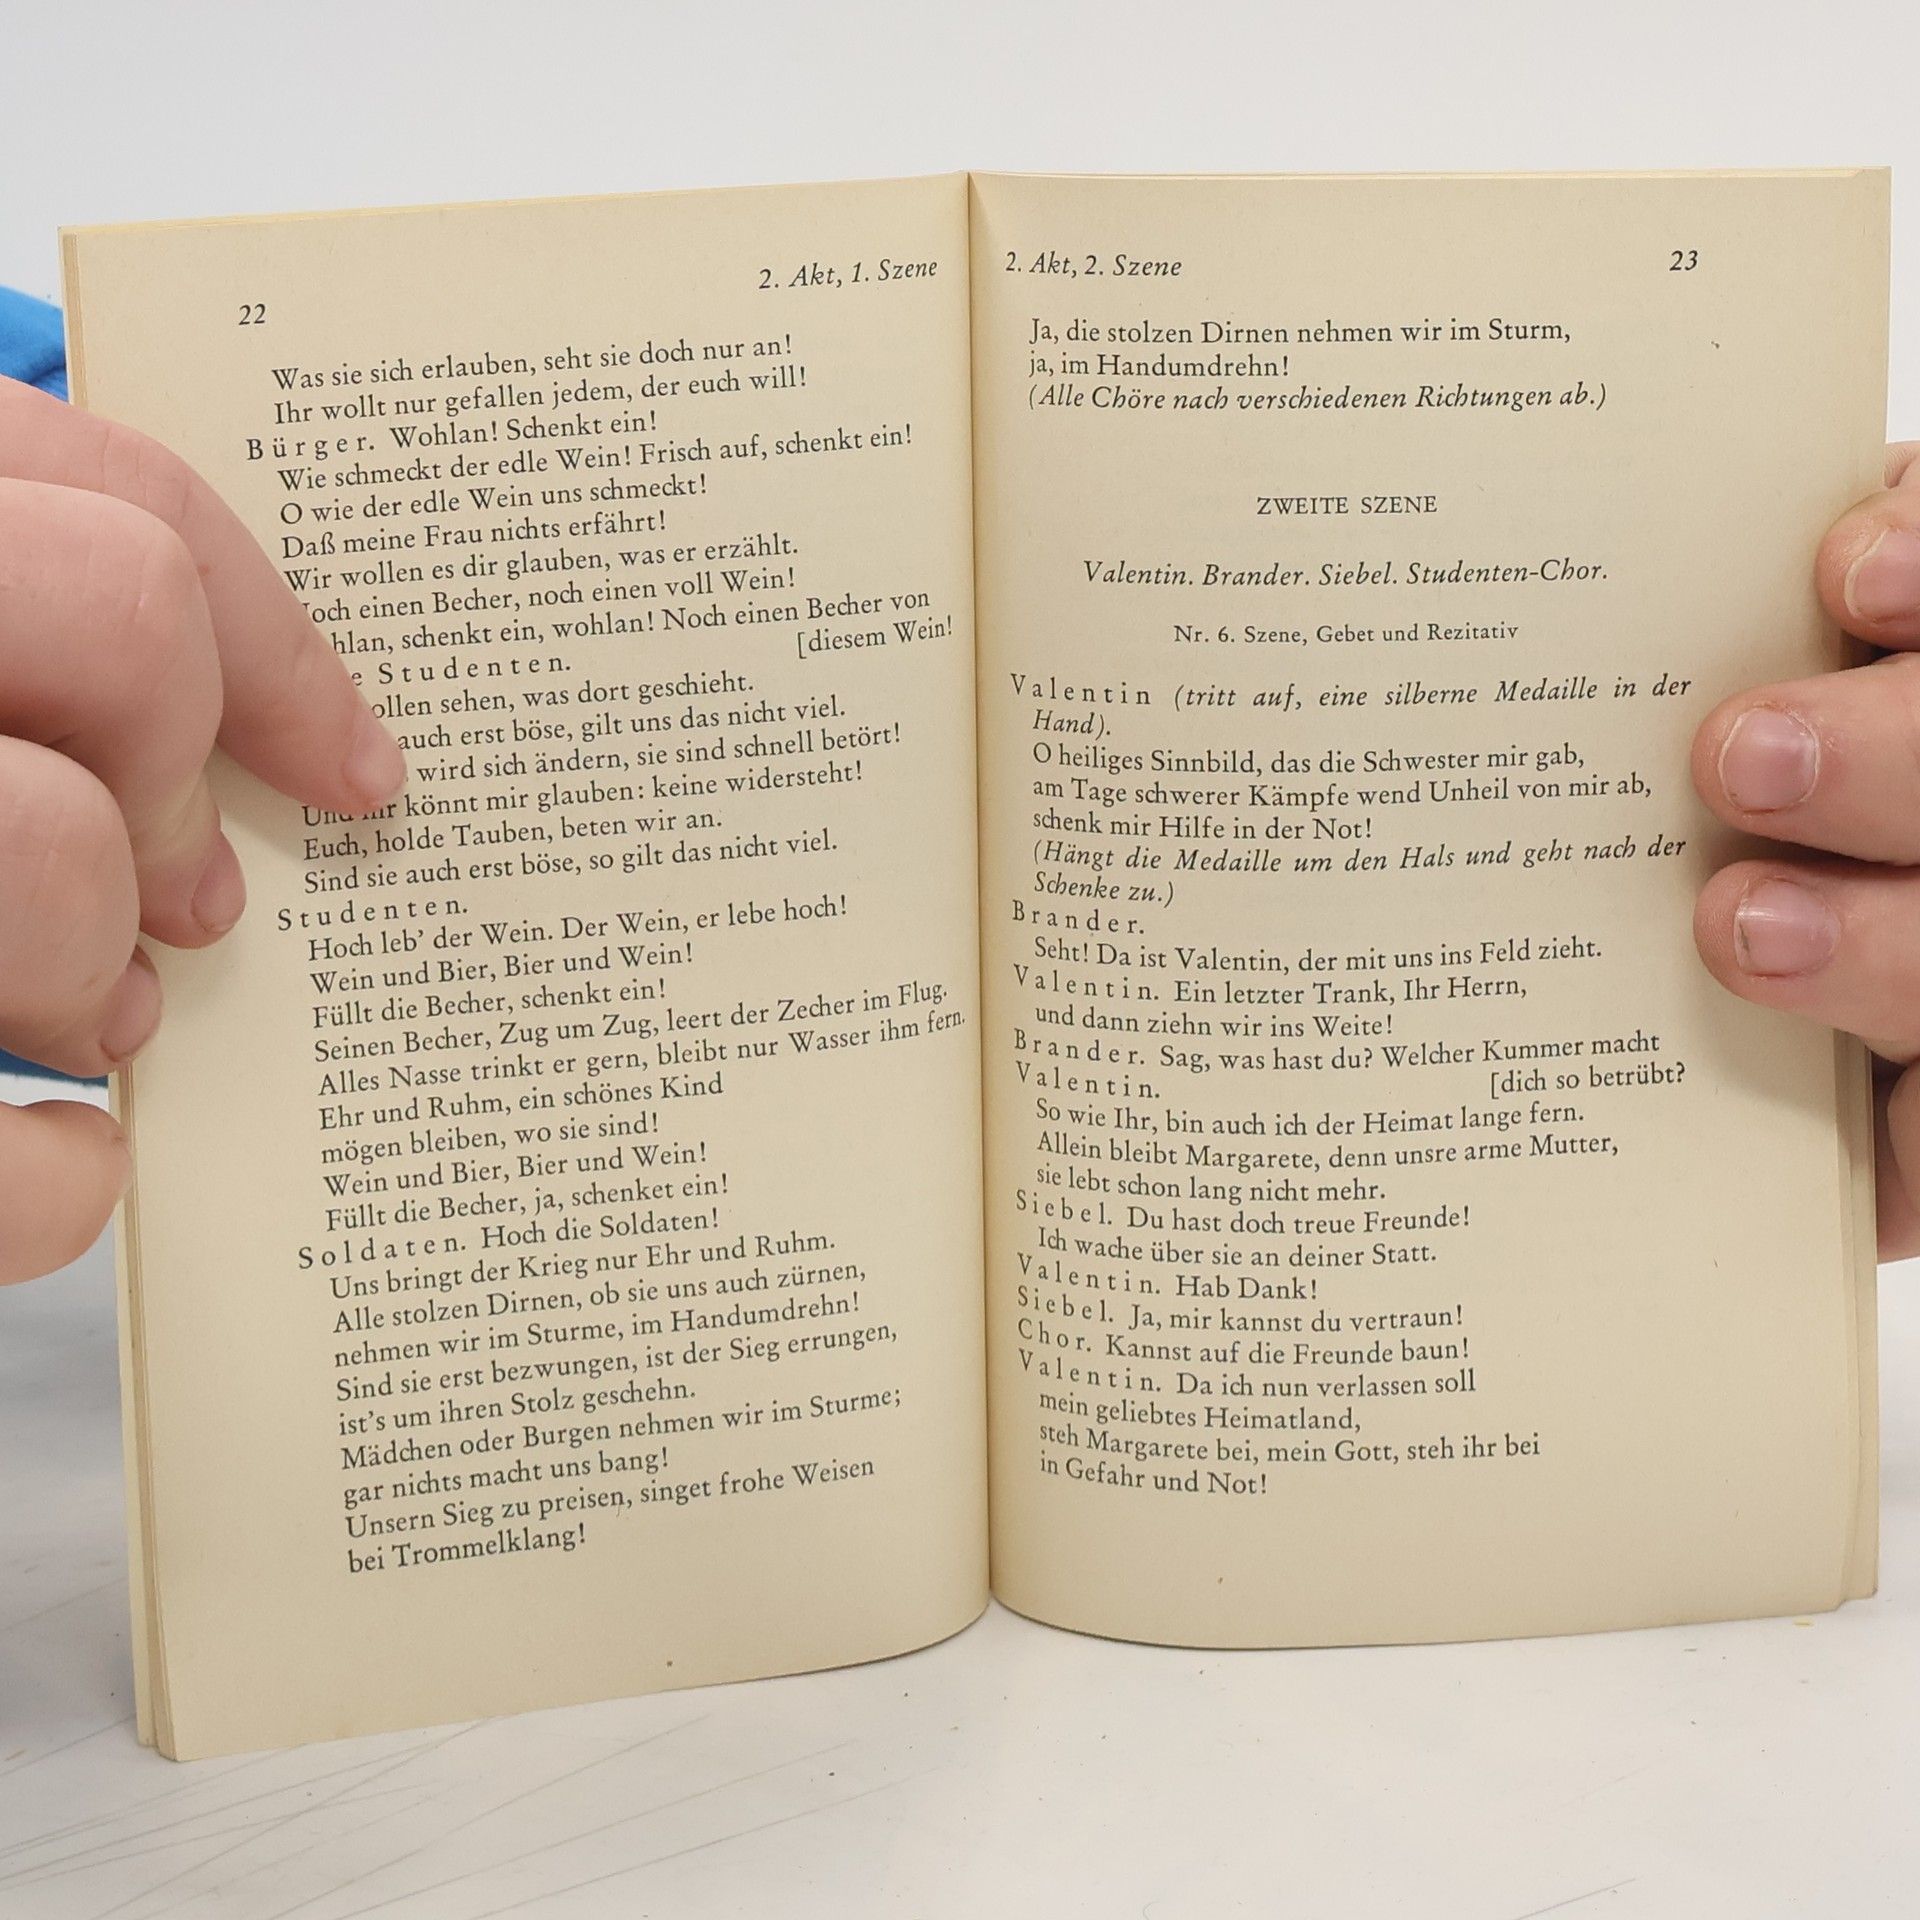 22
2. Akt, 1. Szene
Was sie sich erlauben, seht sie doch nur an!
Ihr wollt nur gefallen jedem, der euch will!
Bürger. Wohlan! Schenkt ein!
Wie schmeckt der edle Wein! Frisch auf, schenkt ein!
O wie der edle Wein uns schmeckt!
Daß meine Frau nichts erfährt!
Wir wollen es dir glauben, was er erzählt.
einen Becher, noch einen voll Wein!
schenkt ein, wohlan! Noch einen Becher von
[diesem Wein!
Studenten.
sehen, was dort geschieht.
auch erst böse, gilt uns das nicht viel.
wird sich ändern, sie sind schnell betört!
Und ihr könnt mir glauben: keine widersteht!
Euch, holde Tauben, beten wir an.
Sind sie auch erst böse, so gilt das nicht viel.
Studenten.
Hoch leb' der Wein. Der Wein, er lebe hoch!
Wein und Bier, Bier und Wein!
Füllt die Becher, schenkt ein!
Seinen Becher, Zug um Zug, leert der Zecher im Flug.
Alles Nasse trinkt er gern, bleibt nur Wasser ihm fern.
Ehr und Ruhm, ein schönes Kind
mögen bleiben, wo sie sind!
Wein und Bier, Bier und Wein!
Füllt die Becher, ja, schenket ein!
Soldaten. Hoch die Soldaten!
Uns bringt der Krieg nur Ehr und Ruhm.
Alle stolzen Dirnen, ob sie uns auch zürnen,
nehmen wir im Sturme, im Handumdrehn!
Sind sie erst bezwungen, ist der Sieg errungen,
ist's um ihren Stolz geschehn.
Mädchen oder Burgen nehmen wir im Sturme;
gar nichts macht uns bang!
Unsern Sieg zu preisen, singet frohe Weisen
bei Trommelklang!
2. Akt, 2. Szene
23
Ja, die stolzen Dirnen nehmen wir im Sturm,
ja, im Handumdrehn!
(Alle Chöre nach verschiedenen Richtungen ab.)
ZWEITE SZENE
Valentin. Brander. Siebel. Studenten-Chor.
Nr. 6. Szene, Gebet und Rezitativ
Valentin (tritt auf, eine silberne Medaille in der
Hand).
O heiliges Sinnbild, das die Schwester mir gab,
am Tage schwerer Kämpfe wend Unheil von mir ab,
schenk mir Hilfe in der Not!
(Hängt die Medaille um den Hals und geht nach der
Schenke zu.)
Brander.
Seht! Da ist Valentin, der mit uns ins Feld zieht.
Valentin. Ein letzter Trank, Ihr Herrn,
und dann ziehn wir ins Weite!
Brander. Sag, was hast du? Welcher Kummer macht
Valentin. [dich so betrübt?
So wie Ihr, bin auch ich der Heimat lange fern.
Allein bleibt Margarete, denn unsre arme Mutter,
sie lebt schon lang nicht mehr.
Siebel. Du hast doch treue Freunde!
Ich wache über sie an deiner Statt.
Valentin. Hab Dank!
Siebel. Ja, mir kannst du vertraun!
Chor. Kannst auf die Freunde baun!
Valentin. Da ich nun verlassen soll
mein geliebtes Heimatland,
steh Margarete bei, mein Gott, steh ihr bei
in Gefahr und Not!